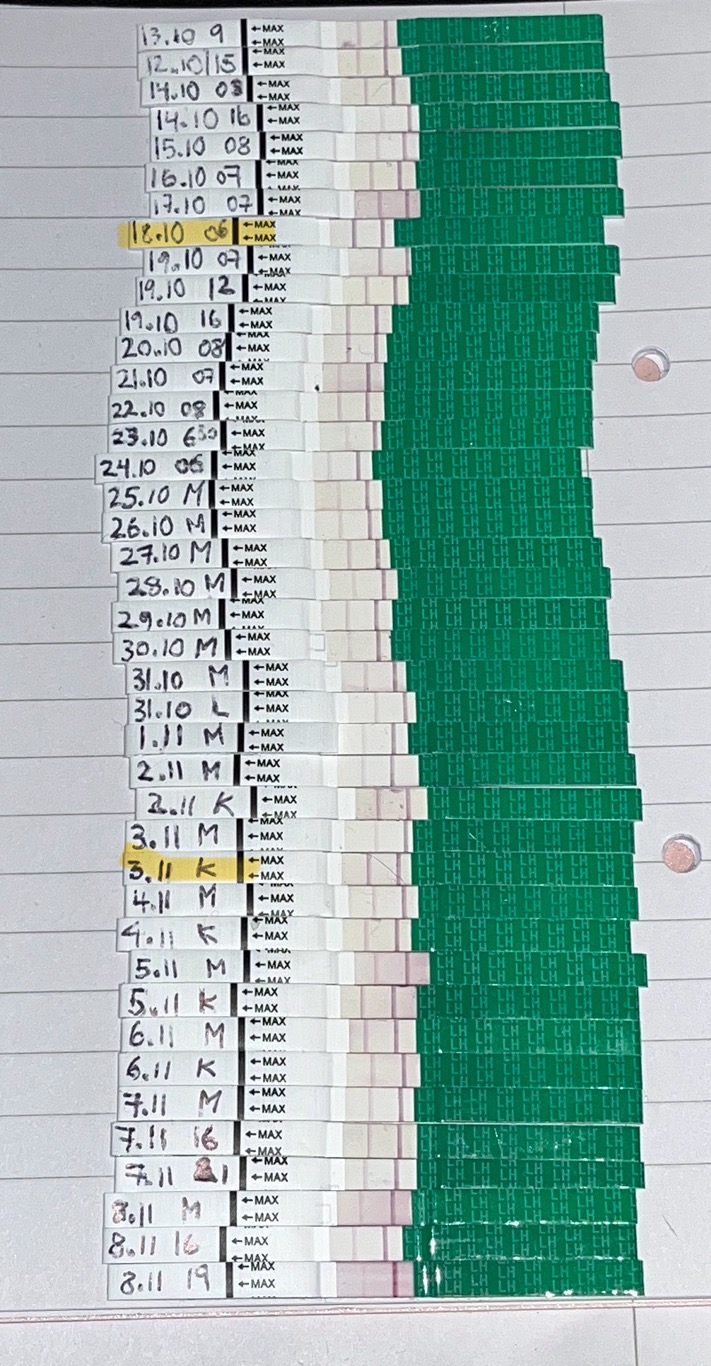 13.10 9 ←MAX ←MAX
12.10/15 ←MAX ←MAX
14.10 08 ←MAX ←MAX
14.10 16 ←MAX ←MAX
15.10 08 ←MAX ←MAX
16.10 07 ←MAX ←MAX
17.10 07 ←MAX ←MAX
18.10 06 ←MAX ←MAX
19.10 07 ←MAX ←MAX
19.10 12 ←MAX ←MAX
19.10 16 ←MAX ←MAX
20.10 08 ←MAX ←MAX
21.10 07 ←MAX ←MAX
22.10 08 ←MAX ←MAX
23.10 6:30 ←MAX ←MAX
24.10 06 ←MAX ←MAX
25.10 M ←MAX ←MAX
26.10 M ←MAX ←MAX
27.10 M ←MAX ←MAX
28.10 M ←MAX ←MAX
29.10 M ←MAX ←MAX
30.10 M ←MAX ←MAX
31.10 M ←MAX ←MAX
31.10 L ←MAX ←MAX
1.11 M ←MAX ←MAX
2.11 M ←MAX ←MAX
2.11 K ←MAX ←MAX
3.11 M ←MAX ←MAX
3.11 K ←MAX ←MAX
4.11 M ←MAX ←MAX
4.11 K ←MAX ←MAX
5.11 M ←MAX ←MAX
5.11 K ←MAX ←MAX
6.11 M ←MAX ←MAX
6.11 K ←MAX ←MAX
7.11 M ←MAX ←MAX
7.11 16 ←MAX ←MAX
7.11 21 ←MAX ←MAX
8.11 M ←MAX ←MAX
8.11 16 ←MAX ←MAX
8.11 19 ←MAX ←MAX